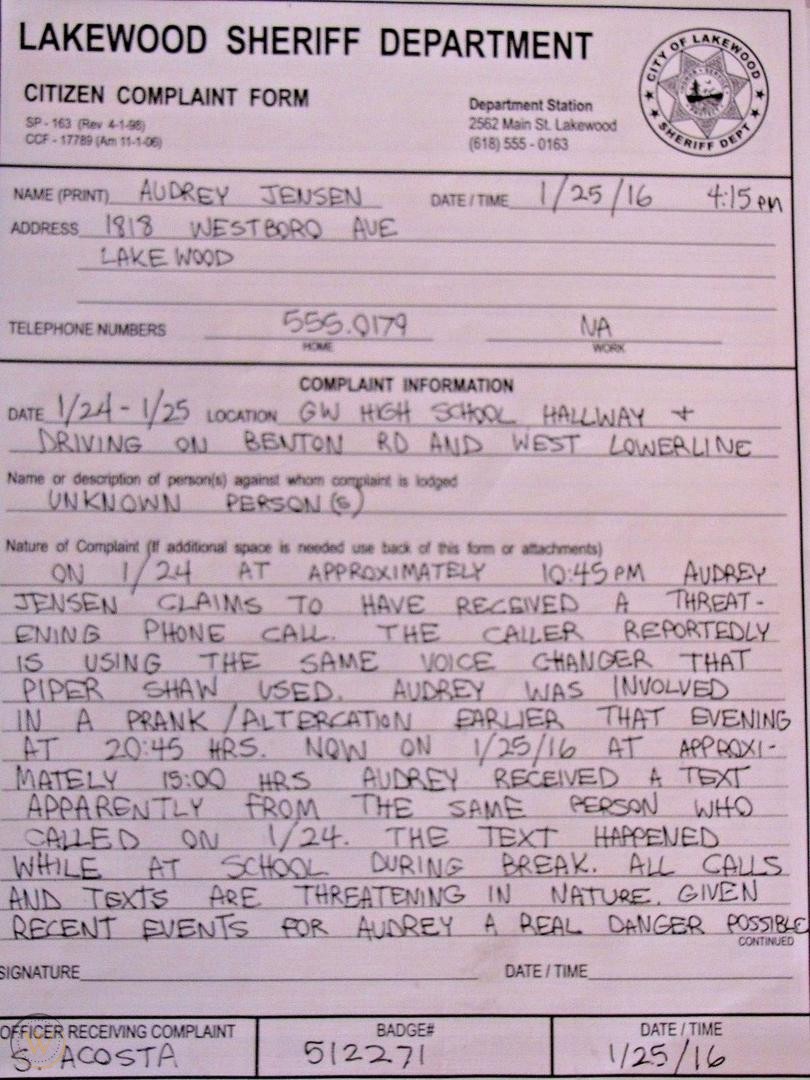 LAKEWOOD SHERIFF DEPARTMENT
CITIZEN COMPLAINT FORM
SP - 163 (Rev 4-1-98)
CCF - 17789 (Am 11-1-06)
Department Station
2562 Main St. Lakewood
(618) 555 - 0163
CITY OF LAKEWOOD
SHERIFF DEPT
NAME (PRINT) AUDREY JENSEN DATE / TIME 1/25/16 4:15 PM
ADDRESS 1818 WESTBORO AVE
LAKEWOOD
TELEPHONE NUMBERS 555.0179 NA
HOME WORK
COMPLAINT INFORMATION
DATE 1/24 - 1/25 LOCATION GW HIGH SCHOOL HALLWAY +
DRIVING ON BENTON RD AND WEST LOWERLINE
Name or description of person(s) against whom complaint is lodged
UNKNOWN PERSON(S)
Nature of Complaint (If additional space is needed use back of this form or attachments)
ON 1/24 AT APPROXIMATELY 10:45 PM AUDREY
JENSEN CLAIMS TO HAVE RECEIVED A THREAT-
ENING PHONE CALL. THE CALLER REPORTEDLY
IS USING THE SAME VOICE CHANGER THAT
PIPER SHAW USED. AUDREY WAS INVOLVED
IN A PRANK/ALTERCATION EARLIER THAT EVENING
AT 20:45 HRS. NOW ON 1/25/16 AT APPROXI-
MATELY 15:00 HRS AUDREY RECEIVED A TEXT
APPARENTLY FROM THE SAME PERSON WHO
CALLED ON 1/24. THE TEXT HAPPENED
WHILE AT SCHOOL DURING BREAK. ALL CALLS
AND TEXTS ARE THREATENING IN NATURE. GIVEN
RECENT EVENTS FOR AUDREY A REAL DANGER POSSIBLE
CONTINUED
SIGNATURE DATE / TIME
OFFICER RECEIVING COMPLAINT BADGE# DATE / TIME
S. ACOSTA 512271 1/25/16